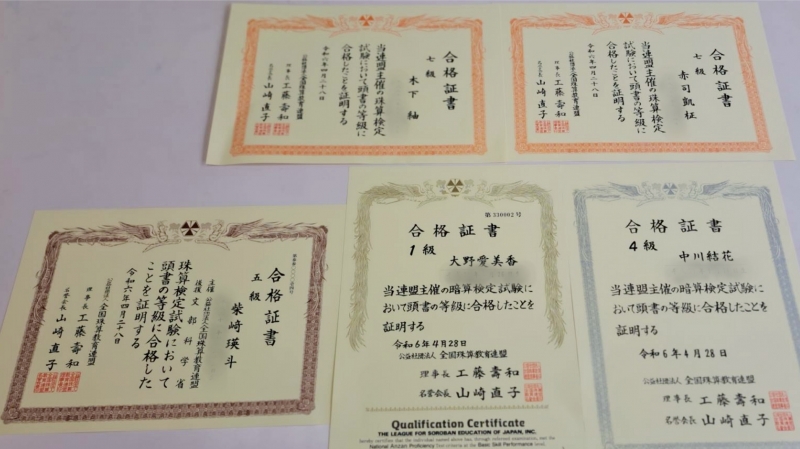 合格証書
七級
木下 紬
当連盟主催の珠算検定
試験において頭書の等級に
合格したことを証明する
令和六年四月二十八日
公益社団法人 全国珠算教育連盟
理事長 工藤壽和
名誉会長 山崎直子
合格証書
七級
赤司凱柾
当連盟主催の珠算検定
試験において頭書の等級に
合格したことを証明する
令和六年四月二十八日
公益社団法人 全国珠算教育連盟
理事長 工藤壽和
名誉会長 山崎直子
合格証書
五級
柴崎瑛斗
主催 公益社団法人 全国珠算教育連盟
後援 文部科学省
珠算検定試験において
頭書の等級に合格した
ことを証明する
令和六年四月二十八日
公益社団法人 全国珠算教育連盟
理事長 工藤壽和
名誉会長 山崎直子
第330002号
合格証書
1級
大野愛美香
当連盟主催の暗算検定試験に
おいて頭書の等級に合格したことを
証明する
令和6年4月28日
公益社団法人 全国珠算教育連盟
理事長 工藤壽和
名誉会長 山崎直子
Qualification Certificate
THE LEAGUE FOR SOROBAN EDUCATION OF JAPAN, INC.
hereby certifies that the individual named above has, through referred examination, met the
National Anzan Proficiency Test criteria at the Basic Skill Performance level.
合格証書
4級
中川結花
当連盟主催の暗算検定試験に
おいて頭書の等級に合格したことを
証明する
令和6年4月28日
公益社団法人 全国珠算教育連盟
理事長 工藤壽和
名誉会長 山崎直子